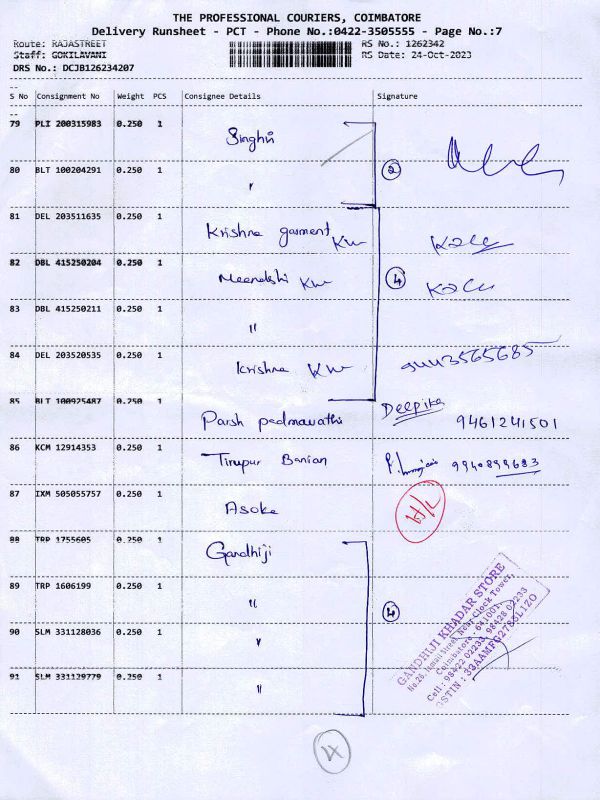 THE PROFESSIONAL COURIERS, COIMBATORE
Delivery Runsheet - PCT - Phone No.:0422-3505555 - Page No.:7
Route: RAJASTREET RS No.: 1262342
Staff: GOKILAVANI RS Date: 24-Oct-2023
DRS No.: DCJB126234207
--
S No Consignment No Weight PCS Consignee Details Signature
--
79 PLI 200315983 0.250 1 Singhvi
80 BLT 100204291 0.250 1 " 2
81 DEL 203511635 0.250 1 Krishna garment KW
82 DBL 415250204 0.250 1 Meenakshi KW 4
83 DBL 415250211 0.250 1 "
84 DEL 203520535 0.250 1 Krishna KW 9443565685
85 BLT 100925487 0.250 1 Parsh padmavathi Deepika 9461241501
86 KCM 12914353 0.250 1 Tirupur Banian 9940899683
87 IXM 505055757 0.250 1 Asoka
88 TRP 1755605 0.250 1 Gandhiji
89 TRP 1606199 0.250 1 " 4
90 SLM 331128036 0.250 1 "
91 SLM 331129779 0.250 1 "
GANDHIJI KHADAR STORE
Near Clock Tower,
Coimbatore - 641001.
Cell : 98422 02233, 98428 02233